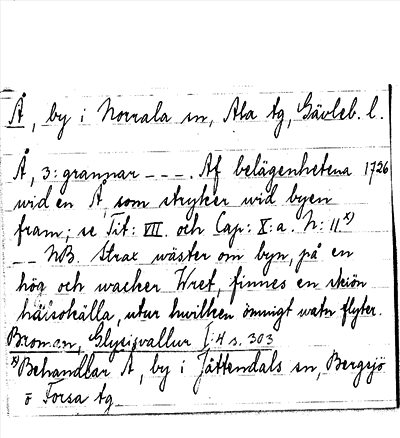 Å, by i Norrala sn, Ala tg, Gävleb. l.
Å, 3: grannar - - -. Af belägenhetena 1726
wid en Å, som stryker wid byen
fram; se Tit: VII. och Cap: X: a. N: 11 x)
- - NB. Strax wäster om byn, på en
hög och wacher Wret, finnes en skiön
hälsokälla, utur hwilken ömnigt watn flyter.
Broman, Glysisvallur I: 4 s. 303
x) Behandlar Å, by i Jättendals sn, Bergsjö
o Forsa tg